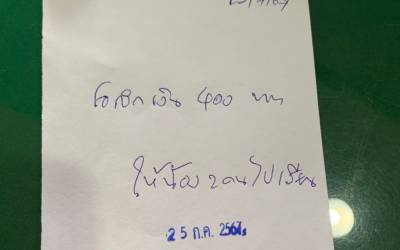 ขอเบิกเงิน 400 บาท
ให้น้อง 2 คนไปเรียน
25 ก.ค. 2567